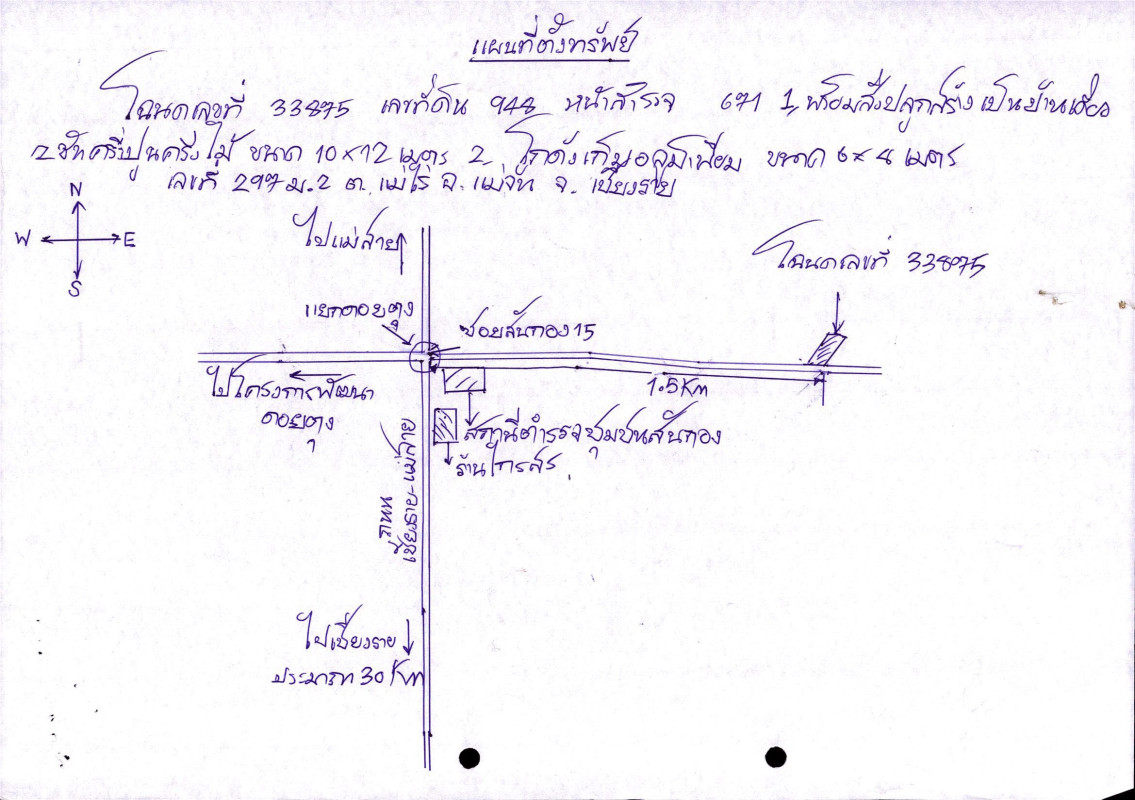 แผนที่ตั้งทรัพย์
โฉนดเลขที่ 33875 เลขที่ดิน 948 หน้าสำรวจ 671 1, พร้อมสิ่งปลูกสร้างเป็นบ้านเดี่ยว
2 ชั้นครึ่งปูนครึ่งไม้ ขนาด 10×12 เมตร 2, โกดังเก็บอลูมิเนียม ขนาด 6×4 เมตร
เลขที่ 297 ม.2 ต.แม่ไร่ อ.แม่จัน จ.เชียงราย
N
W E
S
ไปแม่สาย
โฉนดเลขที่ 33875
แยกดอยตุง
ซอยสันกอง 15
ไปโครงการพัฒนา
ดอยตุง
1.5 Km
สถานีตำรวจชุมชนสันกอง
ร้านไกรสร
ถนน
เชียงราย-แม่สาย
ไปเชียงราย
ประมาณ 30 Km